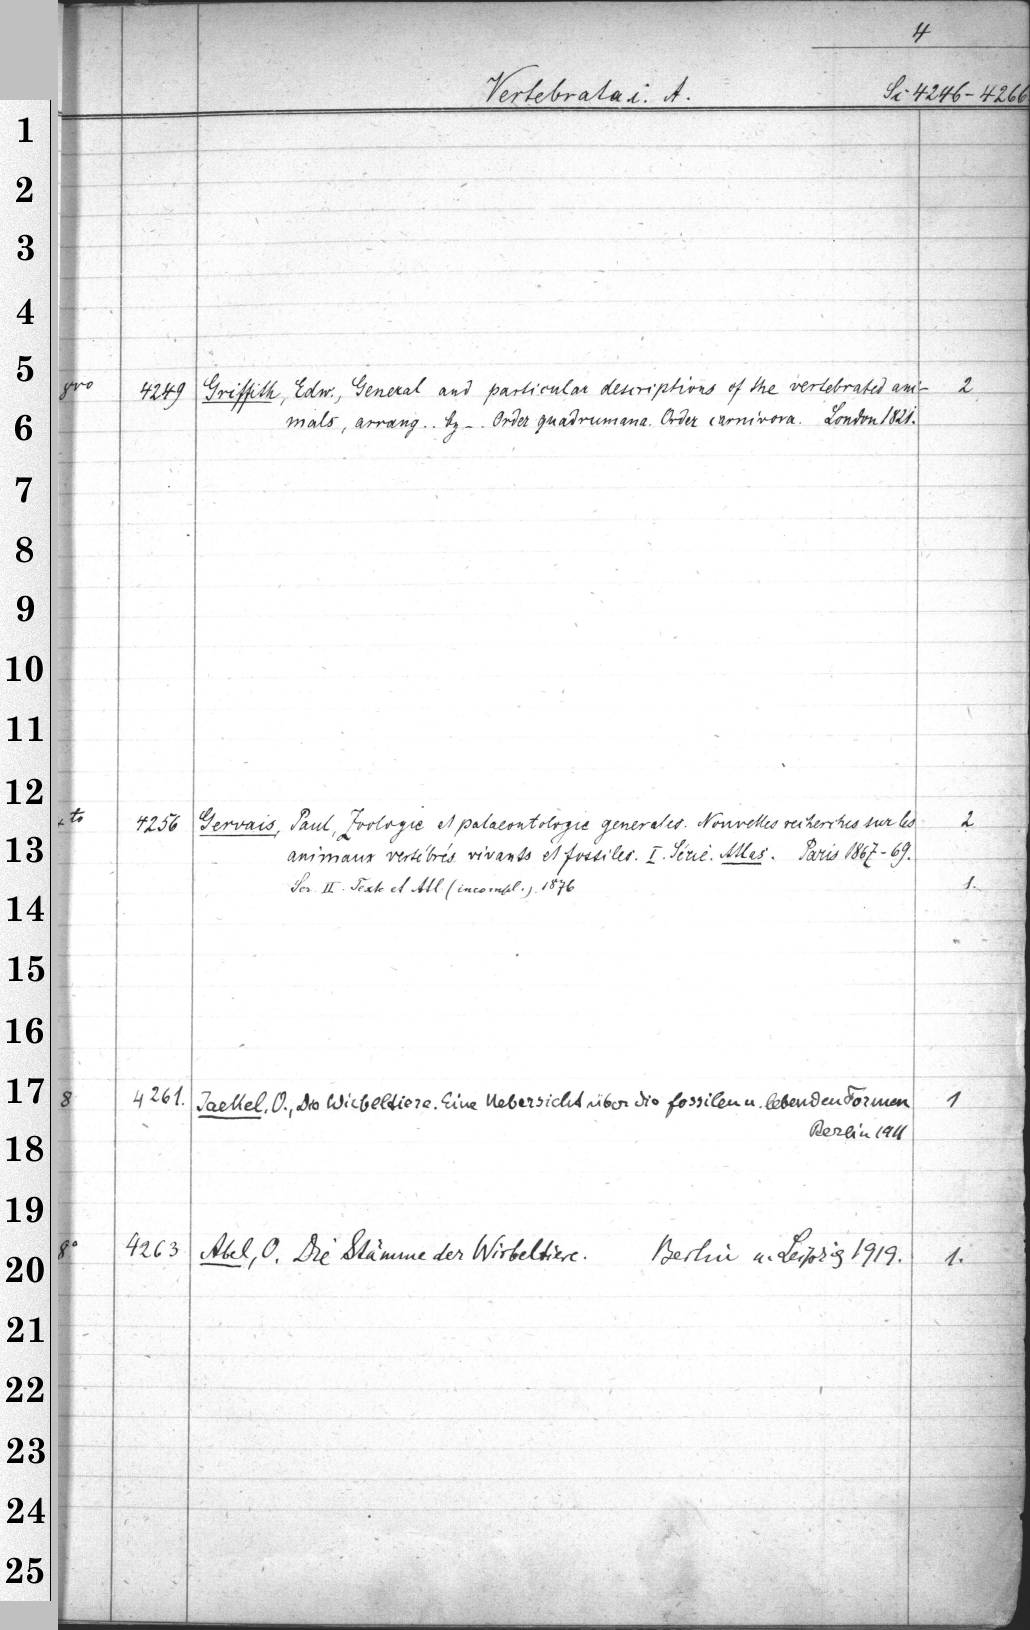 4
Vertebrata i. A. Si 4246-4266
1
2
3
4
5
8vo 4249 Griffith, Edw., General and particular descriptions of the vertebrated ani- 2
6
mals, arrang.. by -. Order quadrumana. Order carnivora. London 1821.
7
8
9
10
11
12
to 4256 Gervais, Paul, Zoologie et palaeontologie generales. Nouvelles recherches sur les 2
13
animaux vertébrés vivants et fossiles. I. Série. Atlas. Paris 1867-69.
Ser. II. Texte et Atl. (incompl.) 1876 1.
14
15
16
17
8 4261. Jaekel, O., Die Wirbeltiere. Eine Uebersicht über die fossilen u. lebenden Formen 1
Berlin 1911
18
19
8° 4263 Abel, O. Die Stämme der Wirbeltiere. Berlin u. Leipzig 1919. 1.
20
21
22
23
24
25